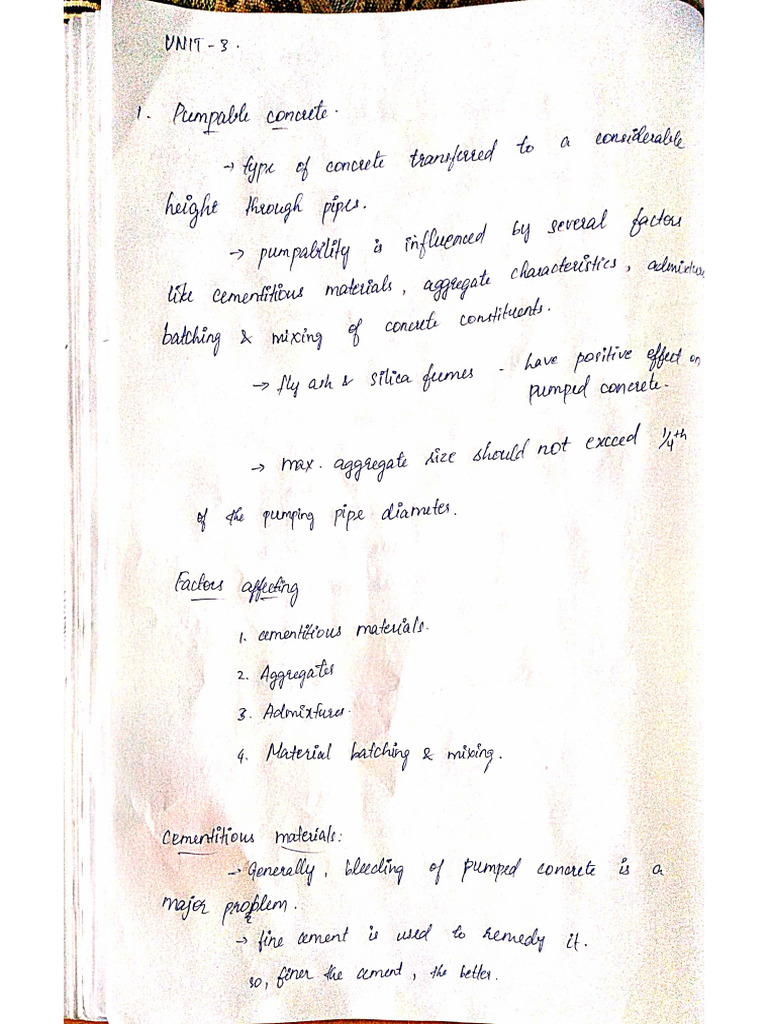 UNIT - 3.
1. Pumpable concrete.
→ type of concrete transferred to a considerable
height through pipes.
→ pumpability is influenced by several factors
like cementitious materials, aggregate characteristics, admixture
batching & mixing of concrete constituents.
→ fly ash & silica fumes - have positive effect on
pumped concrete.
→ max. aggregate size should not exceed 1/4th
of the pumping pipe diameter.
Factors affecting
1. cementitious materials.
2. Aggregates
3. Admixtures.
4. Material batching & mixing.
Cementitious materials:
→ Generally, bleeding of pumped concrete is a
major problem.
→ fine cement is used to remedy it.
so, finer the cement, the better.